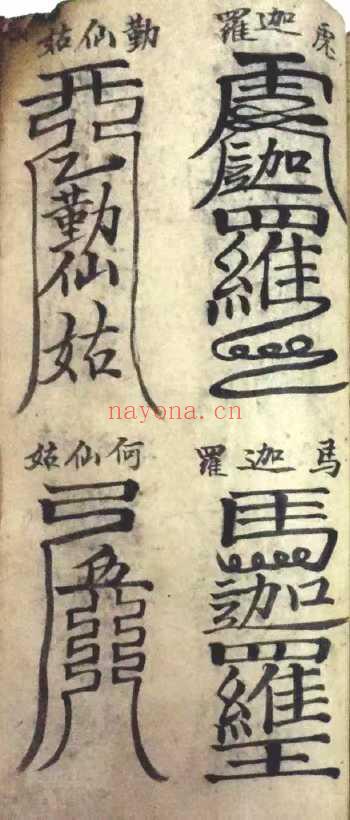 虎迦羅
虎迦羅
勤仙姑
勤仙姑
nayona.cn
馬迦羅
馬迦羅王
何仙姑
弓